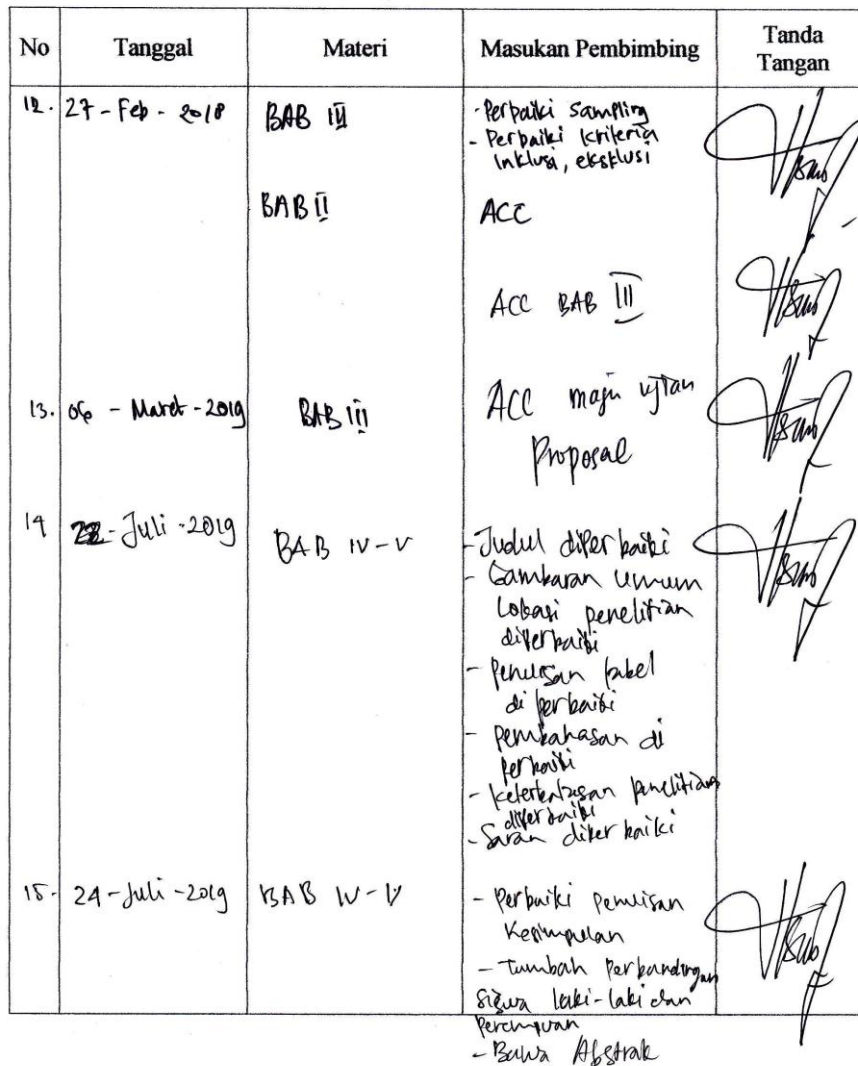 No Tanggal Materi Masukan Pembimbing Tanda Tangan
12. 27 - Feb - 2018 BAB III - Perbaiki Sampling
- Perbaiki kriteria
inklusi, eksklusi
BAB II ACC
ACC BAB III
13. 06 - Maret - 2019 BAB III ACC maju ujian
Proposal
14 22 - Juli - 2019 BAB IV - V - Judul diperbaiki
- Gambaran umum
lokasi penelitian
diperbaiki
- Penulisan tabel
di perbaiki
- pembahasan di
perbaiki
- keterbatasan penelitian
diperbaiki
- Saran diperbaiki
15. 24 - Juli - 2019 BAB IV - V - Perbaiki penulisan
Kesimpulan
- Tambah Perbandingan
siswa laki-laki dan
Perempuan
- Bawa Abstrak